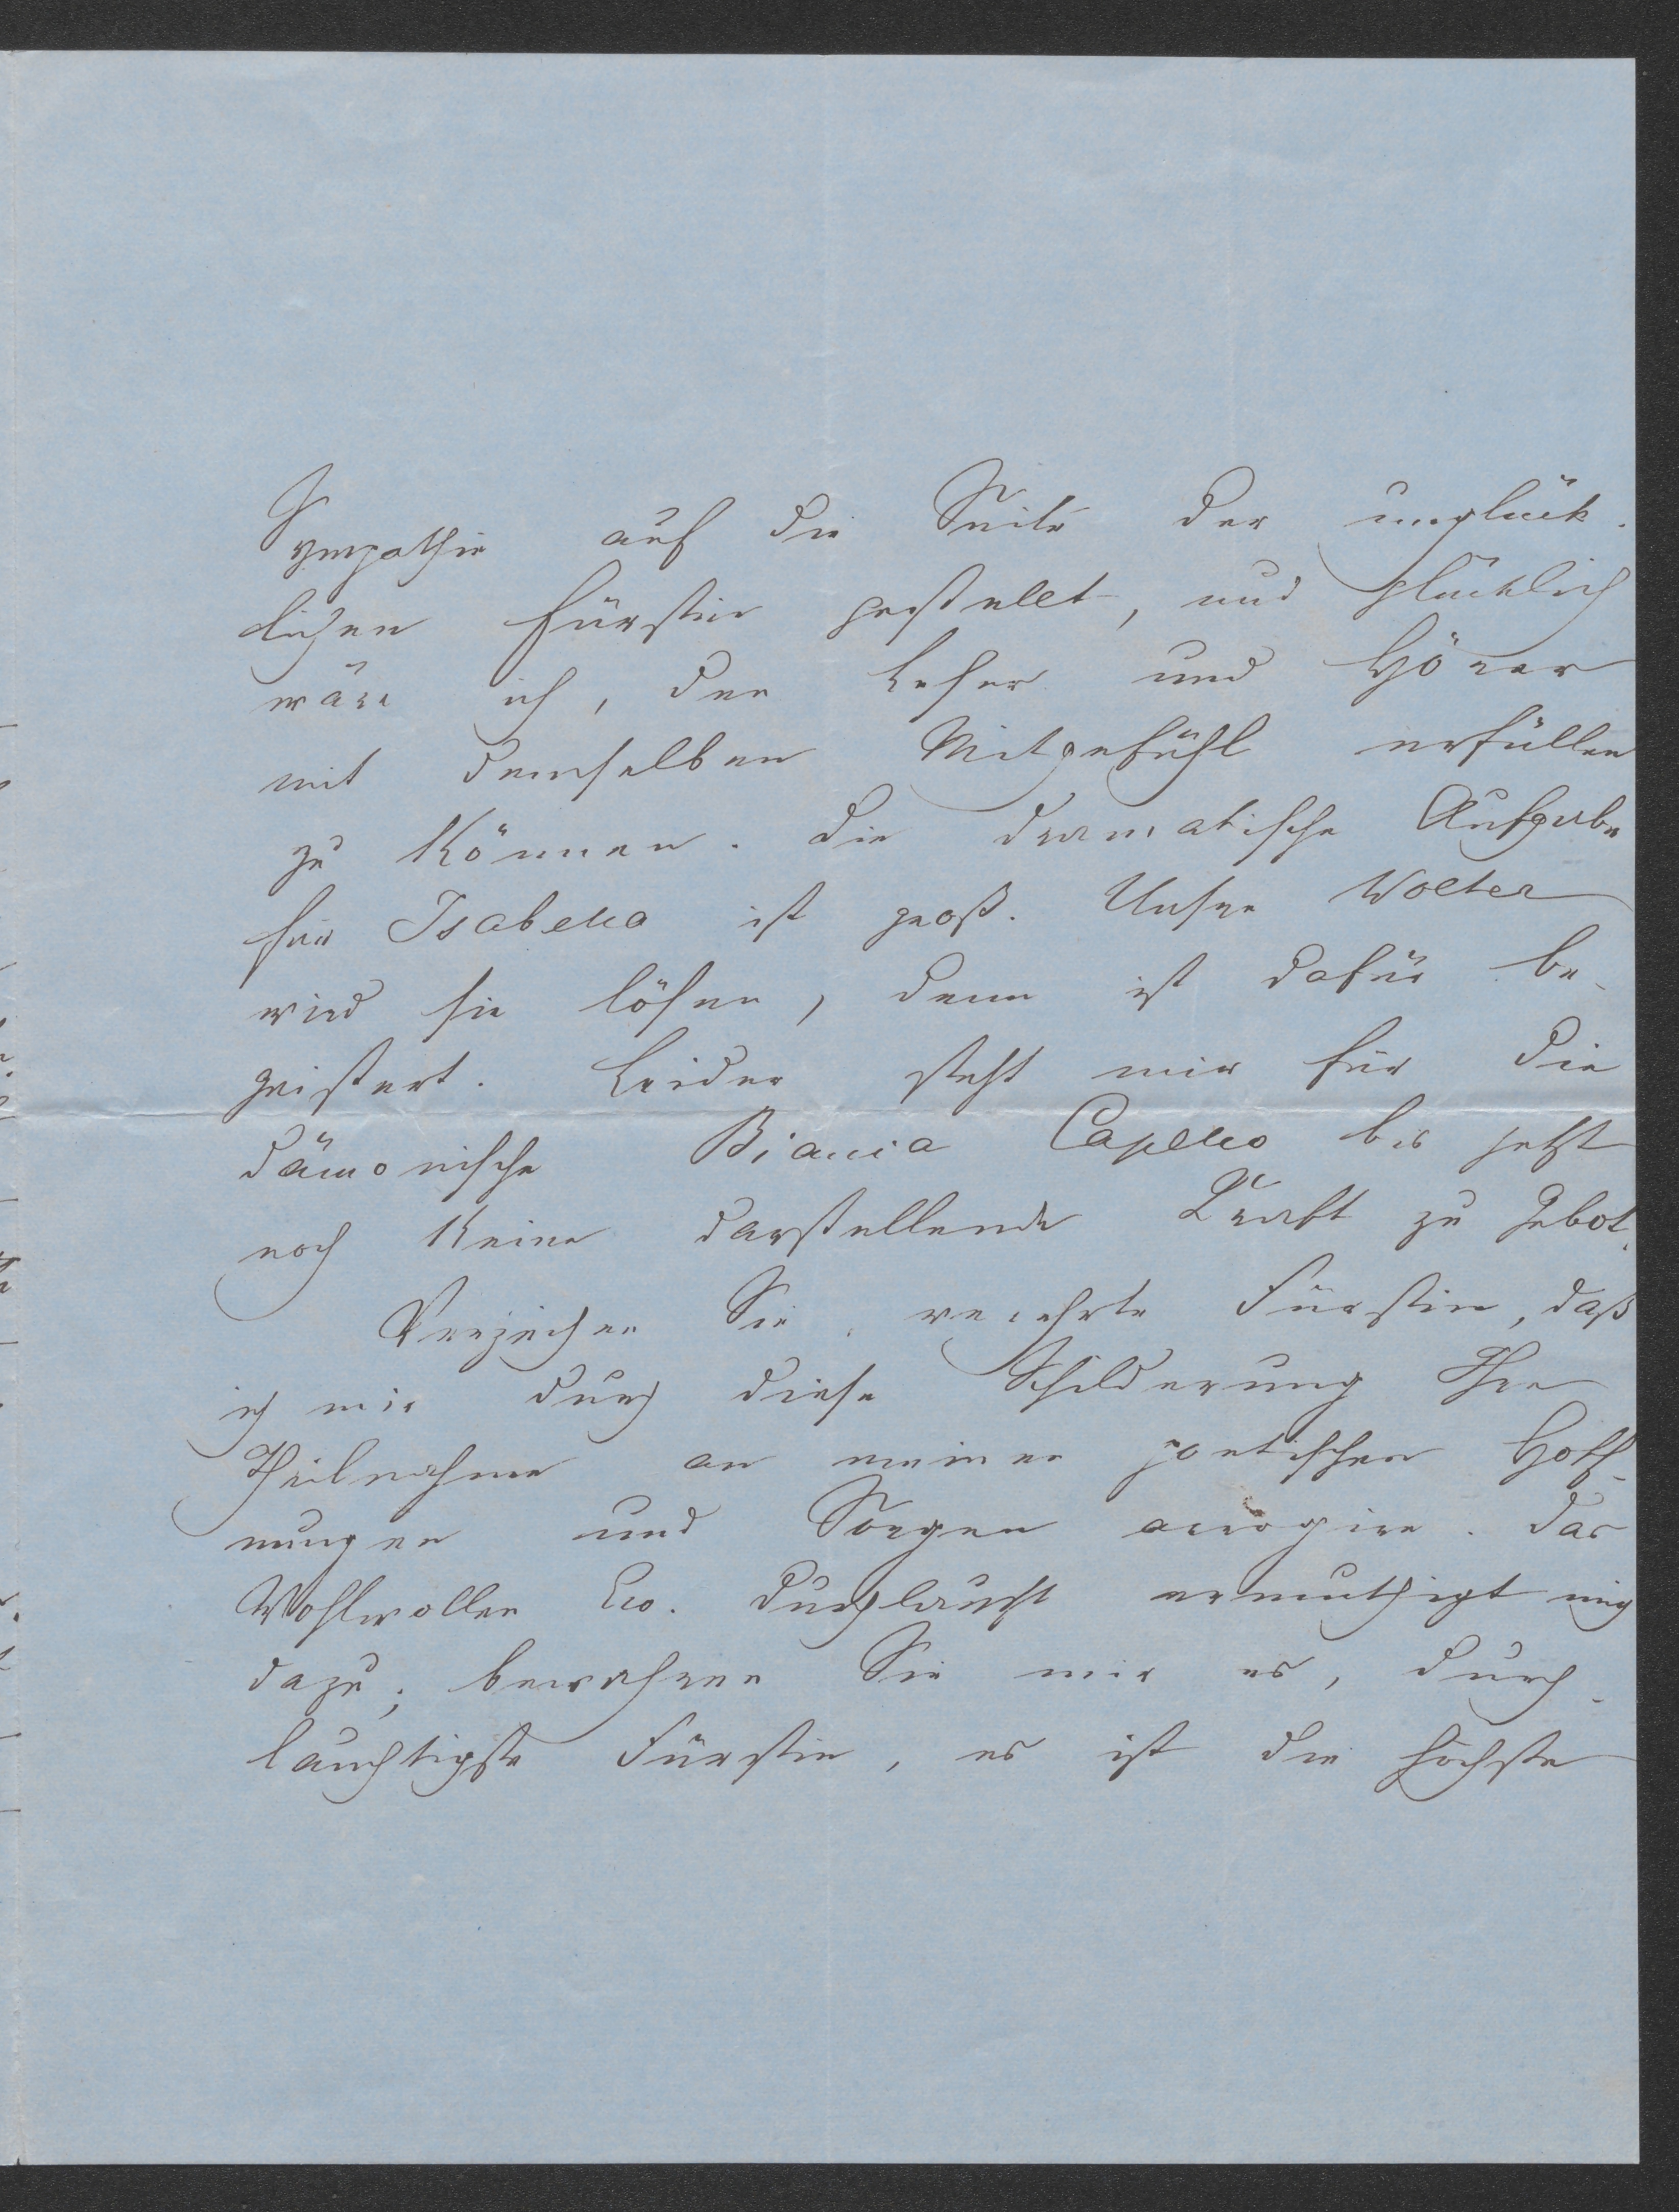 Sympathie auf die Seite der unglück-
lichen Fürstin gestellt, und glücklich
wäre ich, den Leser und Hörer
mit demselben Mitgefühl erfüllen
zu können. Die dramatische Aufgabe
für Isabella ist groß. Unsere Wolter
wird sie lösen, denn ist dafür be-
geistert. Leider steht mir für die
dämonische Bianca Capello bis jetzt
noch keine darstellende Kraft zu Gebot.
Verzeihen Sie, verehrte Fürstin, daß
ich mir durch diese Schilderung Ihre
Theilnahme an meinen poetischen Hoff-
nungen und Sorgen arrogire. Das
Wohlwollen Ew. Durchlaucht ermuthigt mich
dazu; bewahren Sie mir es, durch-
lauchtigste Fürstin, es ist die höchste